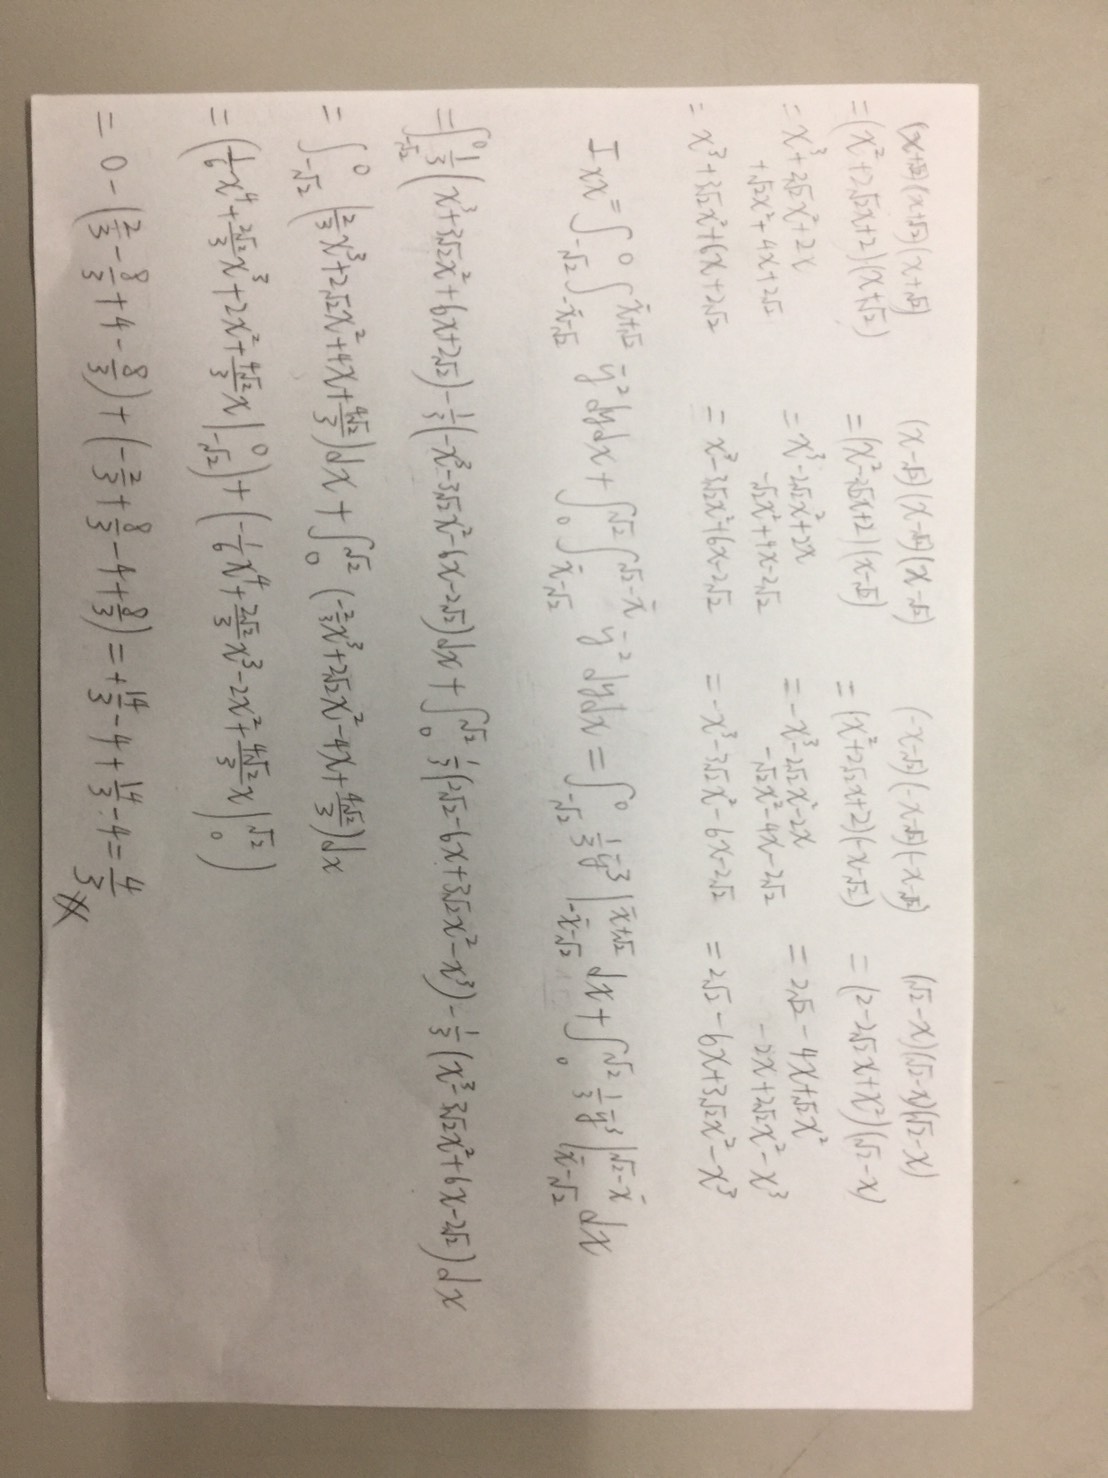 (x+√2)(x+√2)(x+√2) (x-√2)(x-√2)(x-√2) (-x-√2)(-x-√2)(-x-√2) (√2-x)(√2-x)(√2-x)
=(x²+2√2x+2)(x+√2) =(x²-2√2x+2)(x-√2) =(x²+2√2x+2)(-x-√2) =(2-2√2x+x²)(√2-x)
=x³+2√2x²+2x =x³-2√2x²+2x =-x³-2√2x²-2x =2√2-4x+√2x²
+√2x²+4x+2√2 -√2x²+4x-2√2 -√2x²-4x-2√2 -2x+2√2x²-x³
=x³+3√2x²+6x+2√2 =x³-3√2x²+6x-2√2 =-x³-3√2x²-6x-2√2 =2√2-6x+3√2x²-x³
Ixx=∫_{-√2}^{0}∫_{-x̄-√2}^{x̄+√2} ȳ²dydx+∫_{0}^{√2}∫_{x̄-√2}^{√2-x̄} ȳ²dydx=∫_{-√2}^{0} 1/3 ȳ³|_{-x̄-√2}^{x̄+√2} dx+∫_{0}^{√2} 1/3 ȳ³|_{x̄-√2}^{√2-x̄} dx
=∫_{-√2}^{0} 1/3(x³+3√2x²+6x+2√2)-1/3(-x³-3√2x²-6x-2√2)dx+∫_{0}^{√2} 1/3(2√2-6x+3√2x²-x³)-1/3(x³-3√2x²+6x-2√2)dx
=∫_{-√2}^{0}(2/3x³+2√2x²+4x+4√2/3)dx+∫_{0}^{√2}(-2/3x³+2√2x²-4x+4√2/3)dx
=(1/6x⁴+2√2/3x³+2x²+4√2/3x|_{-√2}^{0})+(-1/6x⁴+2√2/3x³-2x²+4√2/3x|_{0}^{√2})
=0-(2/3-8/3+4-8/3)+(-2/3+8/3-4+8/3)=+14/3-4+14/3-4=4/3